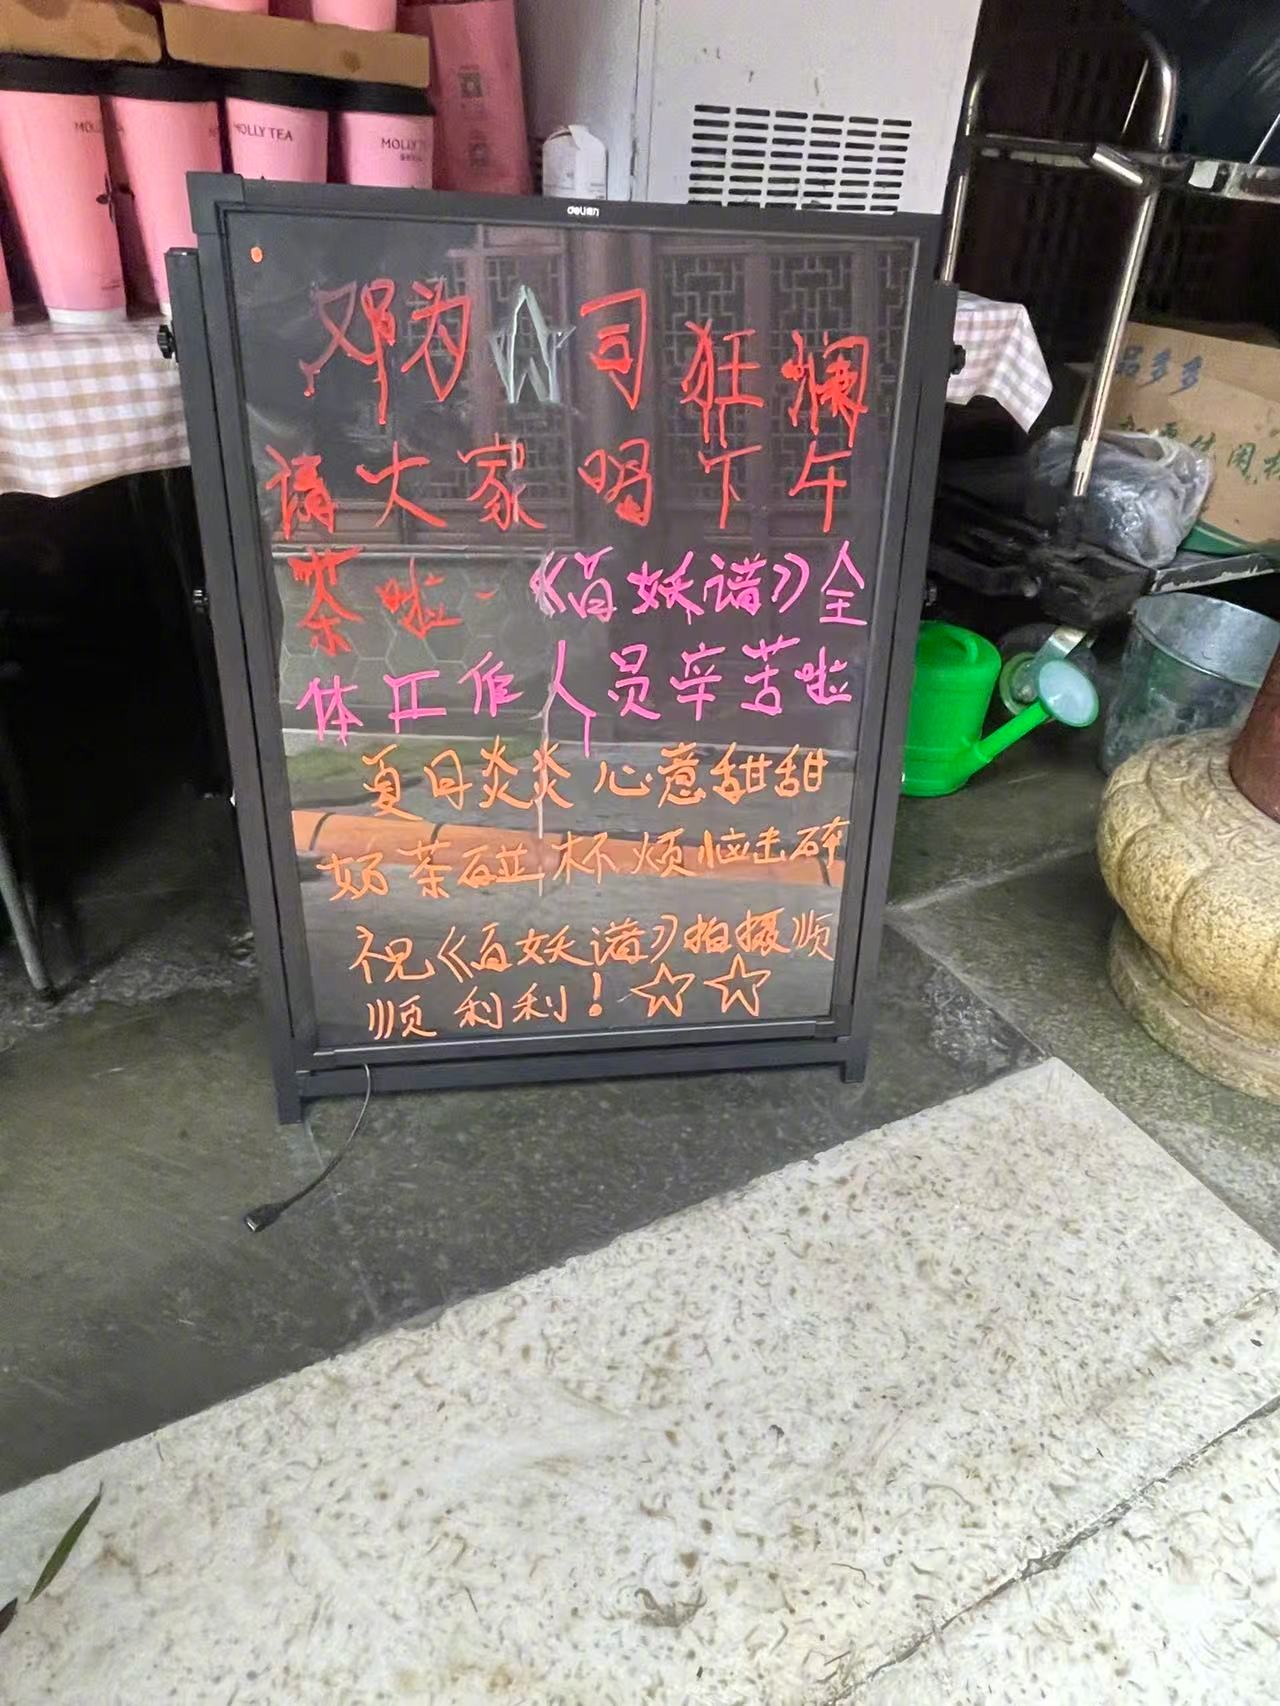 MOLLY TEA
MOLLY TEA
deli得力
邓为 司狂澜
请大家喝下午
茶啦~《百妖谱》全
体工作人员辛苦啦
夏日炎炎 心意甜甜
奶茶碰杯 烦恼击碎
祝《百妖谱》拍摄顺
顺利利!☆☆
品多多